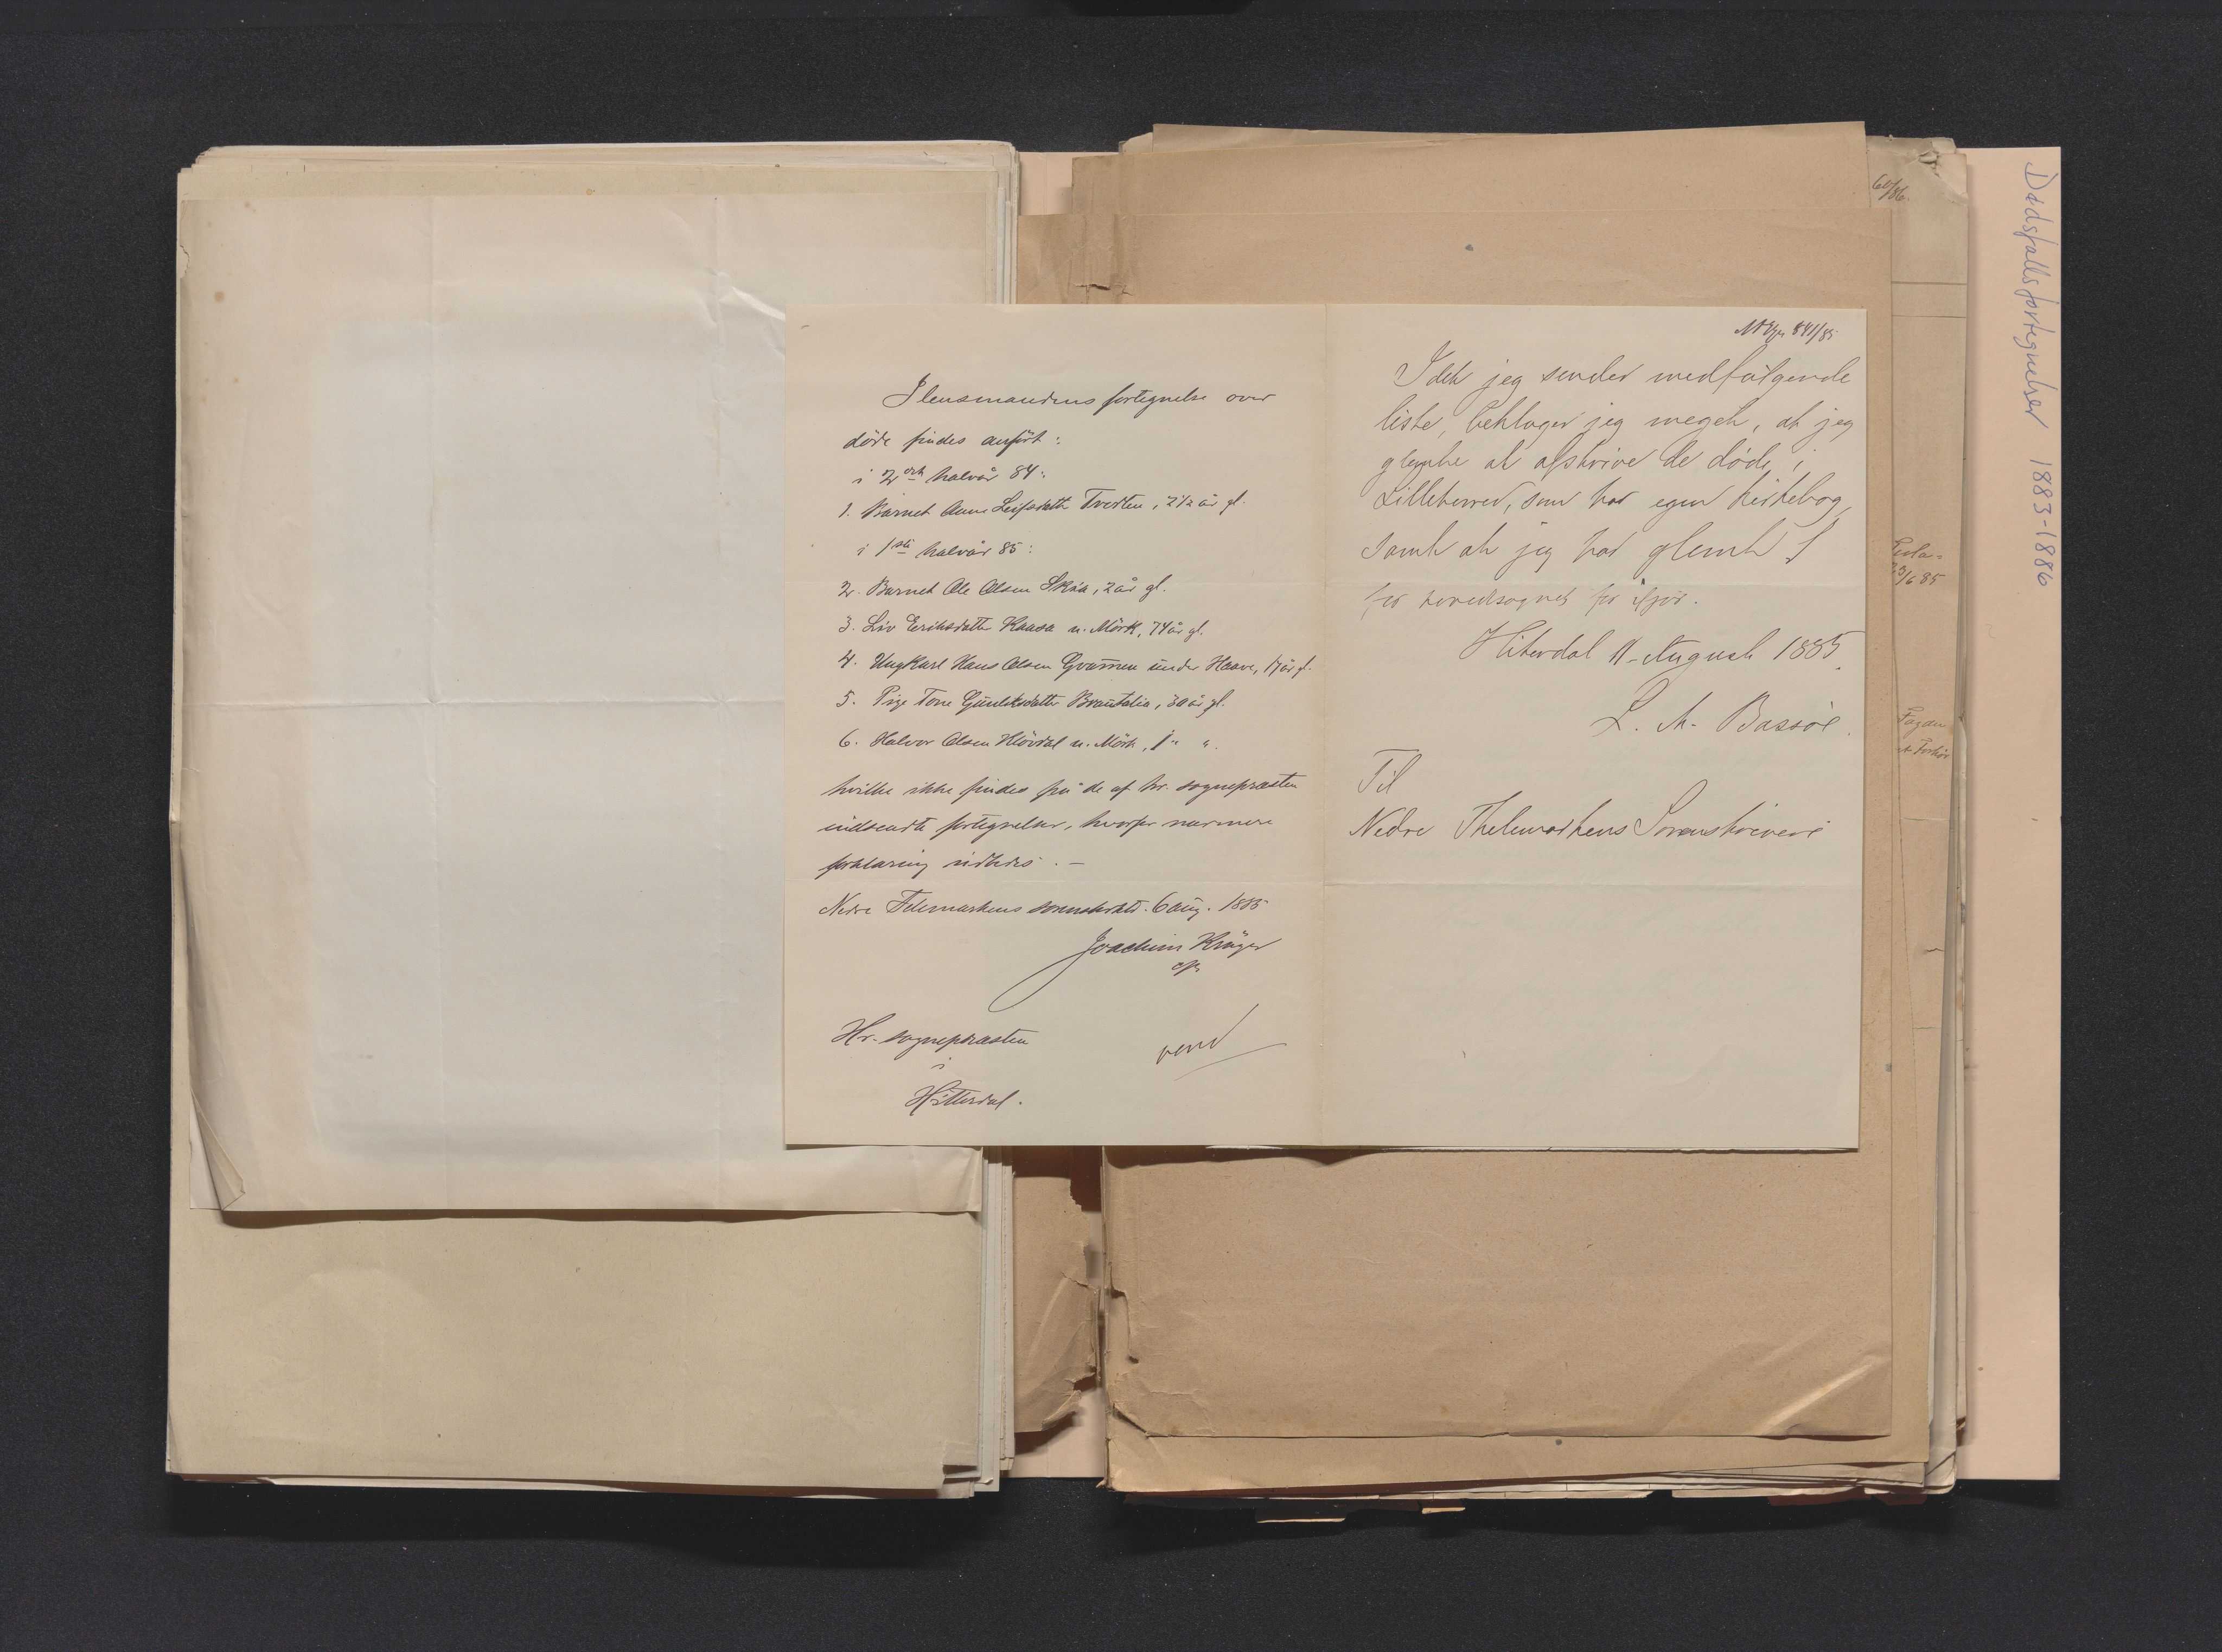 I lensmandens fortegnelse over
döde findes anfört:
i 2det halvår 84:
1. Barnet Anne Leifsdatter Tveiten, 2 1/2 år gl.
i 1ste halvår 85:
2. Barnet Ole Olsen Skia, 2 år gl.
3. Liv Eriksdatter Kaasa u. Mörk, 74 år gl.
4. Ungkarl Hans Olsen under Haave, 17 år gl.
5. Pige Tone Gunleksdatter 30 år gl.
6. Halvor Olsen Klövdal u. Mörk, 1 " "
hvilke ikke findes på de af hr. sognepræsten
indsendte fortegnelser, hvorfor nærmere
forklaring udbedes. —
Nedre Telemarkens 6 aug. 1885
Joachim Krüger
Hr. sognepræsten
i
Hitterdal.
vend
841/85
Idet jeg sender medfölgende
liste, beklager jeg meget, at jeg
glemte at afskrive de döde i
Lilleherred, som har egen kirkebog,
samt at jeg har glemt 1
for hovedsognet for ifjor.
Hiterdal 11 August 1885.
L. A. Bassöe.
Til
Nedre Thelemarkens Sorenskriveri
60/86
6 85
Dødsfallsfortegnelser 1883-1886